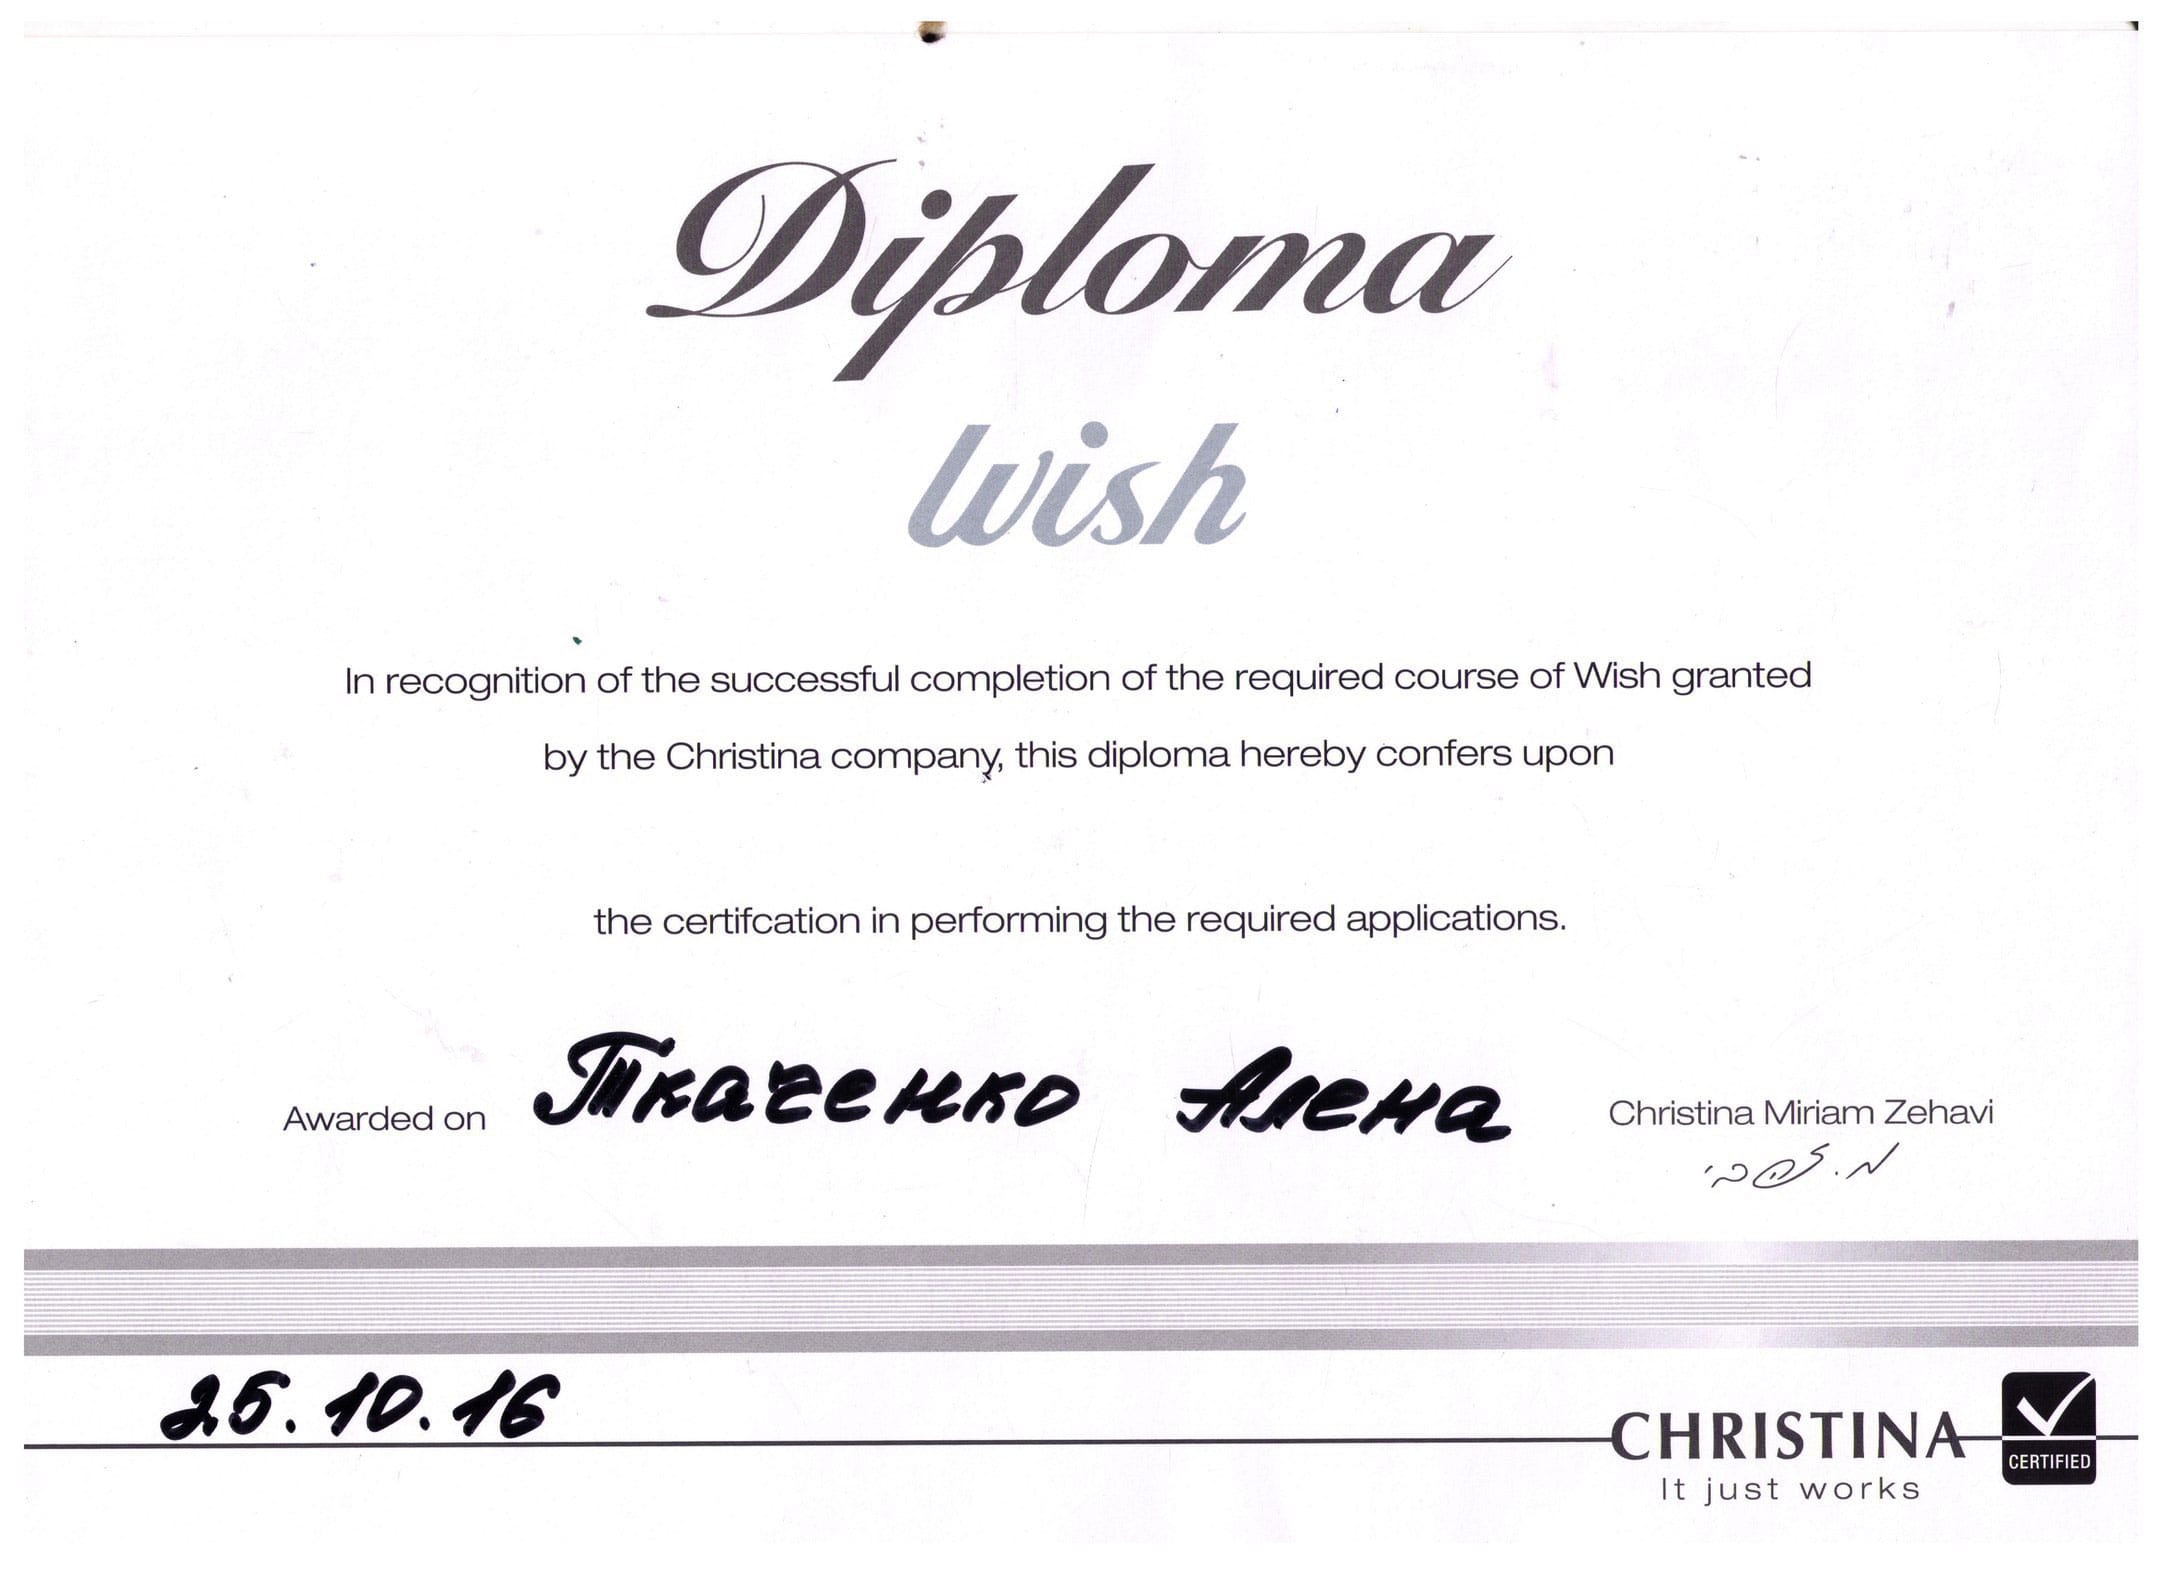 Diploma
Wish
In recognition of the successful completion of the required course of Wish granted
by the Christina company, this diploma hereby confers upon
the certifcation in performing the required applications.
Awarded on Ткаченко Алена Christina Miriam Zehavi
מ. זהבי
25.10.16
CHRISTINA
CERTIFIED
It just works